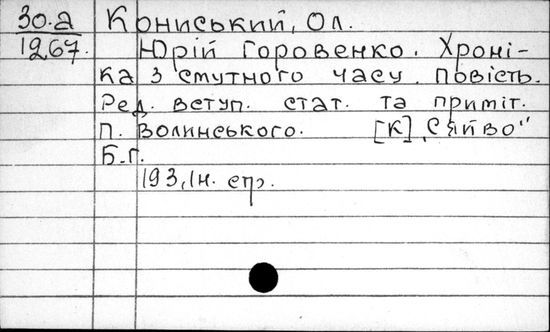 30.а Кониський, Ол.
1267. Юрій Горовенко. Хроні-
ка з смутного часу. Повість.
Ред. вступ. стат. та приміт.
П. Волинського. [К] „Сяйво"
Б.г.
193, Ін. стр.